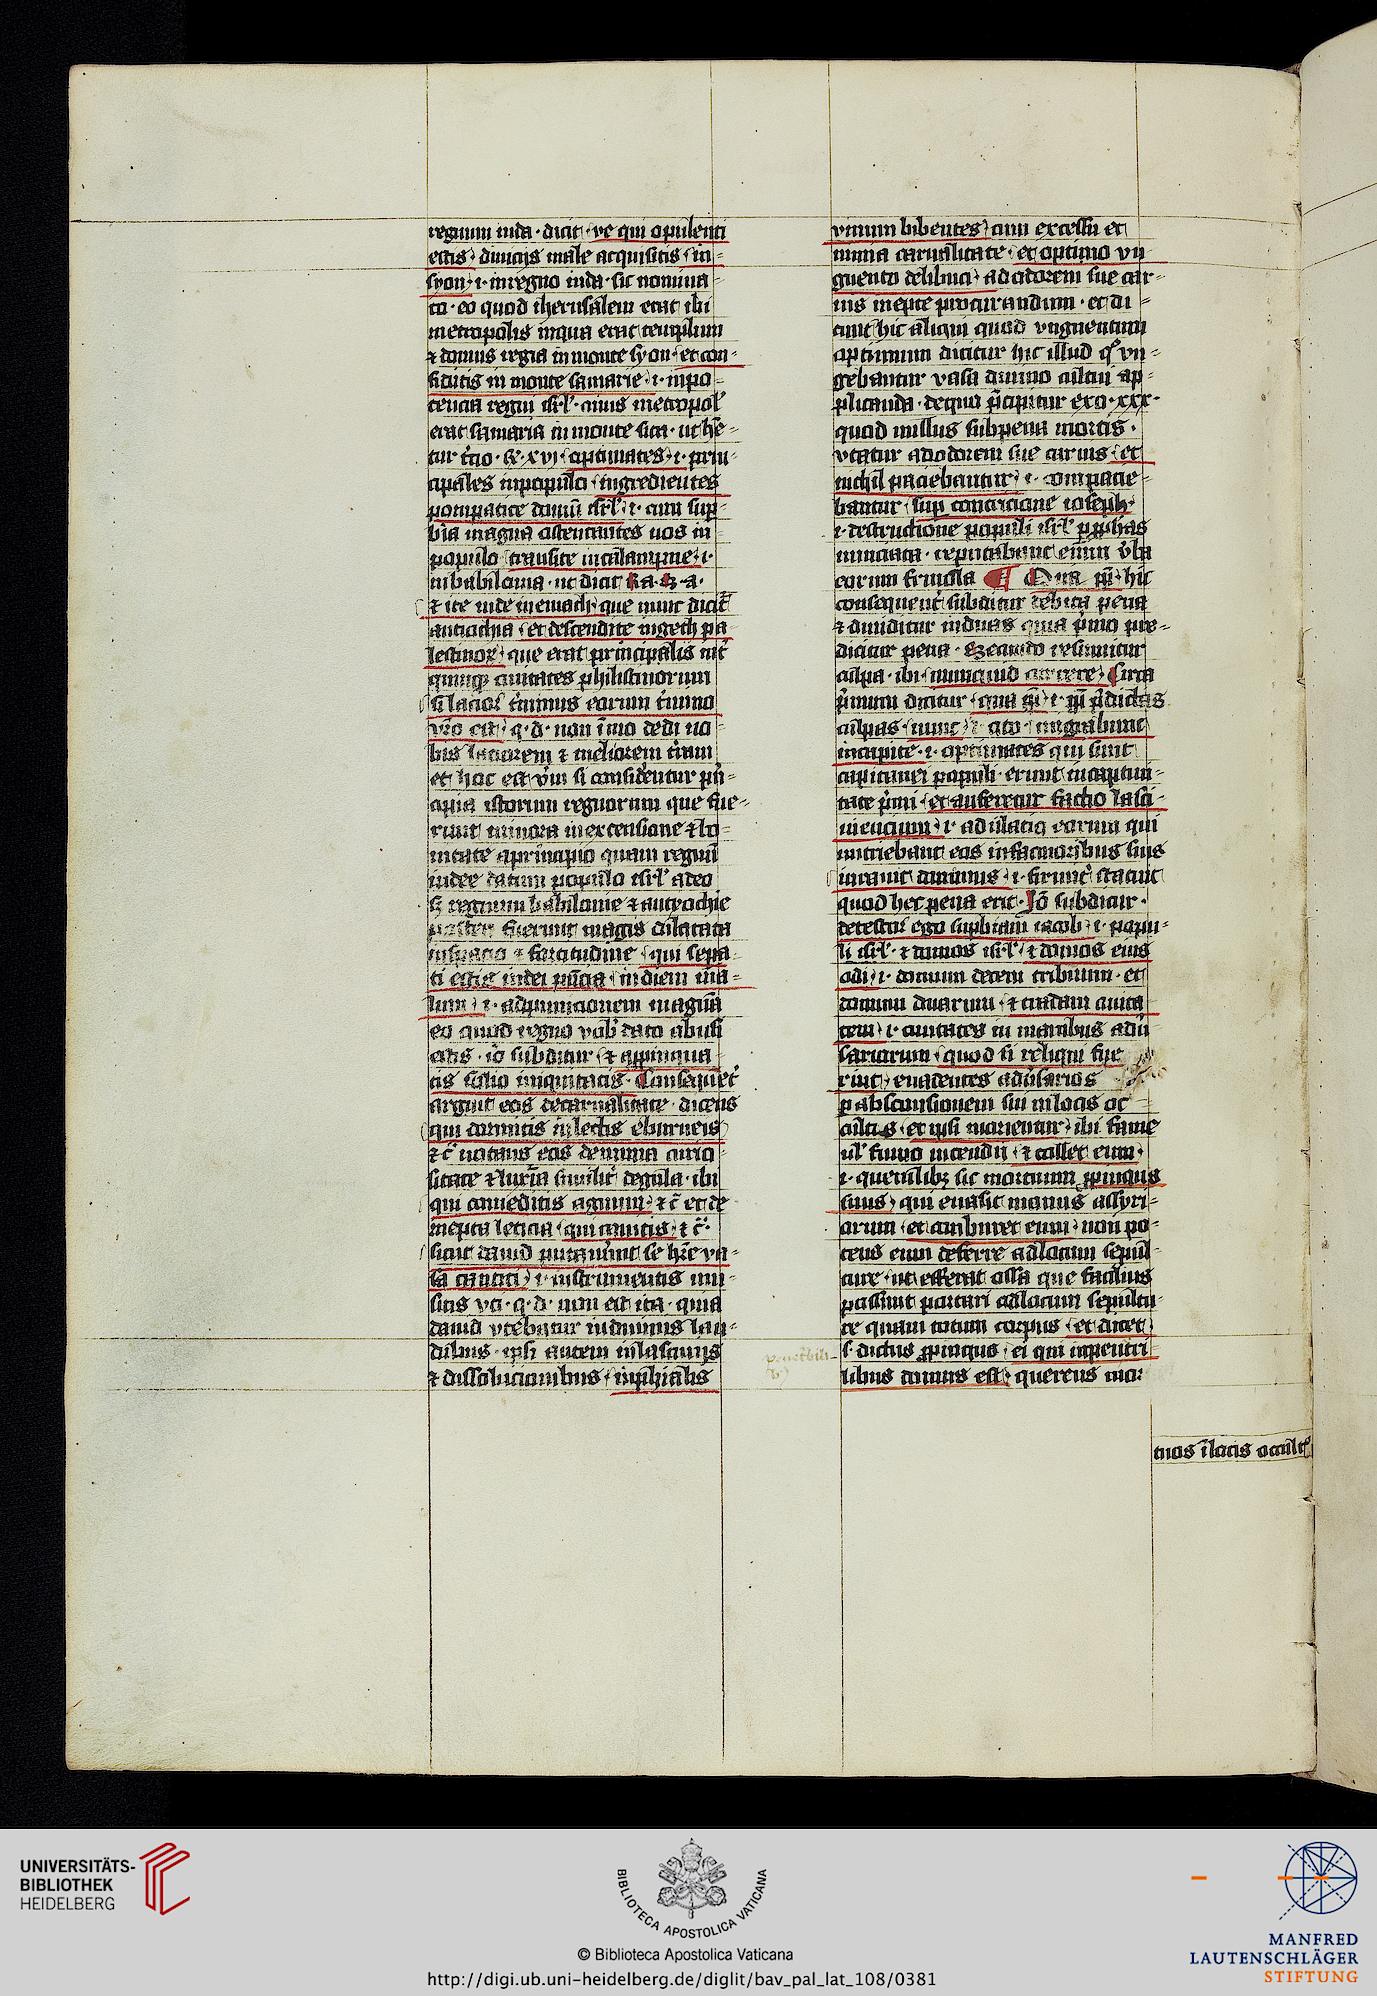 regnum iuda · dicit · ve qui opulenti
estis · diuicijs male acquisitis · in
syon · i · in regno iuda · sic nomina
to · eo quod iherusalem erat ibi
metropolis in qua erat templum
⁊ domus regia in monte syon · et con⸗
fiditis in monte samarie · i · in po⸗
tencia regni isrl̄ · cuius metropol̄
erat samaria in monte sita · ut he⸗
tur t̄cio · xvj · optimates · i · prin⸗
cipales in populo · ingredientes
pompatice domū isrl̄ · i · cum sup
bia magna ostentantes uos in
populo · transite in calampne · i ·
in babilonia · ut dicit Ra · Sa ·
⁊ ite inde in emach · que nunc dicit̄
antiochia · et descendite in geth pa⸗
lestinor · que erat principalis int̄
quinq ciuitates philistinorum
si lacior t̄minus eorum t̄mino
vr̄o est · q · d · non īmo dedi uo
bis laciorem ⁊ meliorem t̄ram
et hoc est v̄um si considerentur prī⸗
cipia istorum regnorum que fue⸗
runt minora in extensione ⁊ bo⸗
nitate a principio quam regnū
iudee datum populo isrl̄ adeo
sʒ regnum babilonie ⁊ antyochie
postea fuerunt magis dilatata
in spacio ⁊ fortitudine · qui sepa⸗
ti estis in diem ma⸗
lum · i · ad punicionem magnā
eo quod regno vob̄ dato abusi
estis · iō subditur · ⁊ appinqua⸗
tis solio iniquitatis · Consequēt̄
arguit eos de carnalitate · dicens
qui dormitis in lectis eburneis
⁊ c̄ notans eos de nimia curio
sitate ⁊ luxuria similit̄ de gula · ibi
qui comeditis agnum · ⁊ c̄ et de
inepta leticia · qui canitis · ⁊ c̄ ·
sicut dauid putauerunt se hr̄e va⸗
sa cantici · i · instrumentis mu⸗
sicis vti · q · d · non est ita · quia
dauid vtebatur in diuinis lau⸗
dibus · ipsi autem in lasciuijs
⁊ dissolucionibus · in phialis
vinum bibentes · cum excessu et
nimia carnalitate · et optimo vn
guento delibuti · ad odorem sue car⸗
nis inepte procurandum · et di⸗
cunt hic aliqui quod vnguentum
optimum dicitur hic illud qo vn⸗
gebantur vasa diuino cultui ap⸗
plicanda · de quo p̄cipitur exo · xxx ·
quod nullus sub pena mortis ·
vtatur ad odorem sue carnis · et
nichil paciebantur · i · compacie⸗
bantur · sup contricione ioseph ·
i · destructione populi isrl̄ p pphas
nunciata · reputabant enim v̄ba
eorum friuola ¶ Qua ppt · hic
consequent̄ subditur debita pena
⁊ diuiditur in duas quia p̄mo pre⸗
dicitur pena · Secundo resumitur
culpa · ibi · nunquid currere · Circa
p̄mum dicitur · qua ppt · i · ppt p̄dictas
culpas · nunc · i · cito · migrabunt
in capite · i · optimates qui sunt
capitanei populi · erunt in captiui⸗
tate p̄mi · et auferetur factio lasci⸗
uiencium · i · adulacio eorum qui
nutriebant eos in facinoribus suis
iurauit dominus · i · firmit̄ statuit
quod hec pena erit · Iō subditur ·
detestor ego supbiam iacob · i · popu⸗
li isrl̄ · ⁊ domos isrl̄ · ⁊ domos eius
odi · i · domum decem tribuum · et
domum duarum · ⁊ tradam ciuita
tem · i · ciuitates in manibus adū
sariorum · quod si reliqui fue
rint · euadentes adūsarios
p absconsionem sui in locis oc⸗
cultis · et ipsi morientur · ibi fame
ul̄ fumo incendii · ⁊ tollet eum ·
i · quemlibʒ sic mortuum ppinquus
suus · qui euasit manus assyri⸗
orum · et comburet eum · non po⸗
tens eum deferre ad locum sepul⸗
ture · ut efferat ossa que facilius
possunt portari ad locum sepultu⸗
re quam totum corpus · et dicet
s · dictus ppinquus · ei qui in penetra
libus domus est · querens mor
tuos ī locis occultis
penet̄bili⸗
UNIVERSITÄTS-
BIBLIOTHEK
HEIDELBERG
BIBLIOTECA APOSTOLICA VATICANA
© Biblioteca Apostolica Vaticana
http://digi.ub.uni-heidelberg.de/diglit/bav_pal_lat_108/0381
MANFRED
LAUTENSCHLÄGER
STIFTUNG